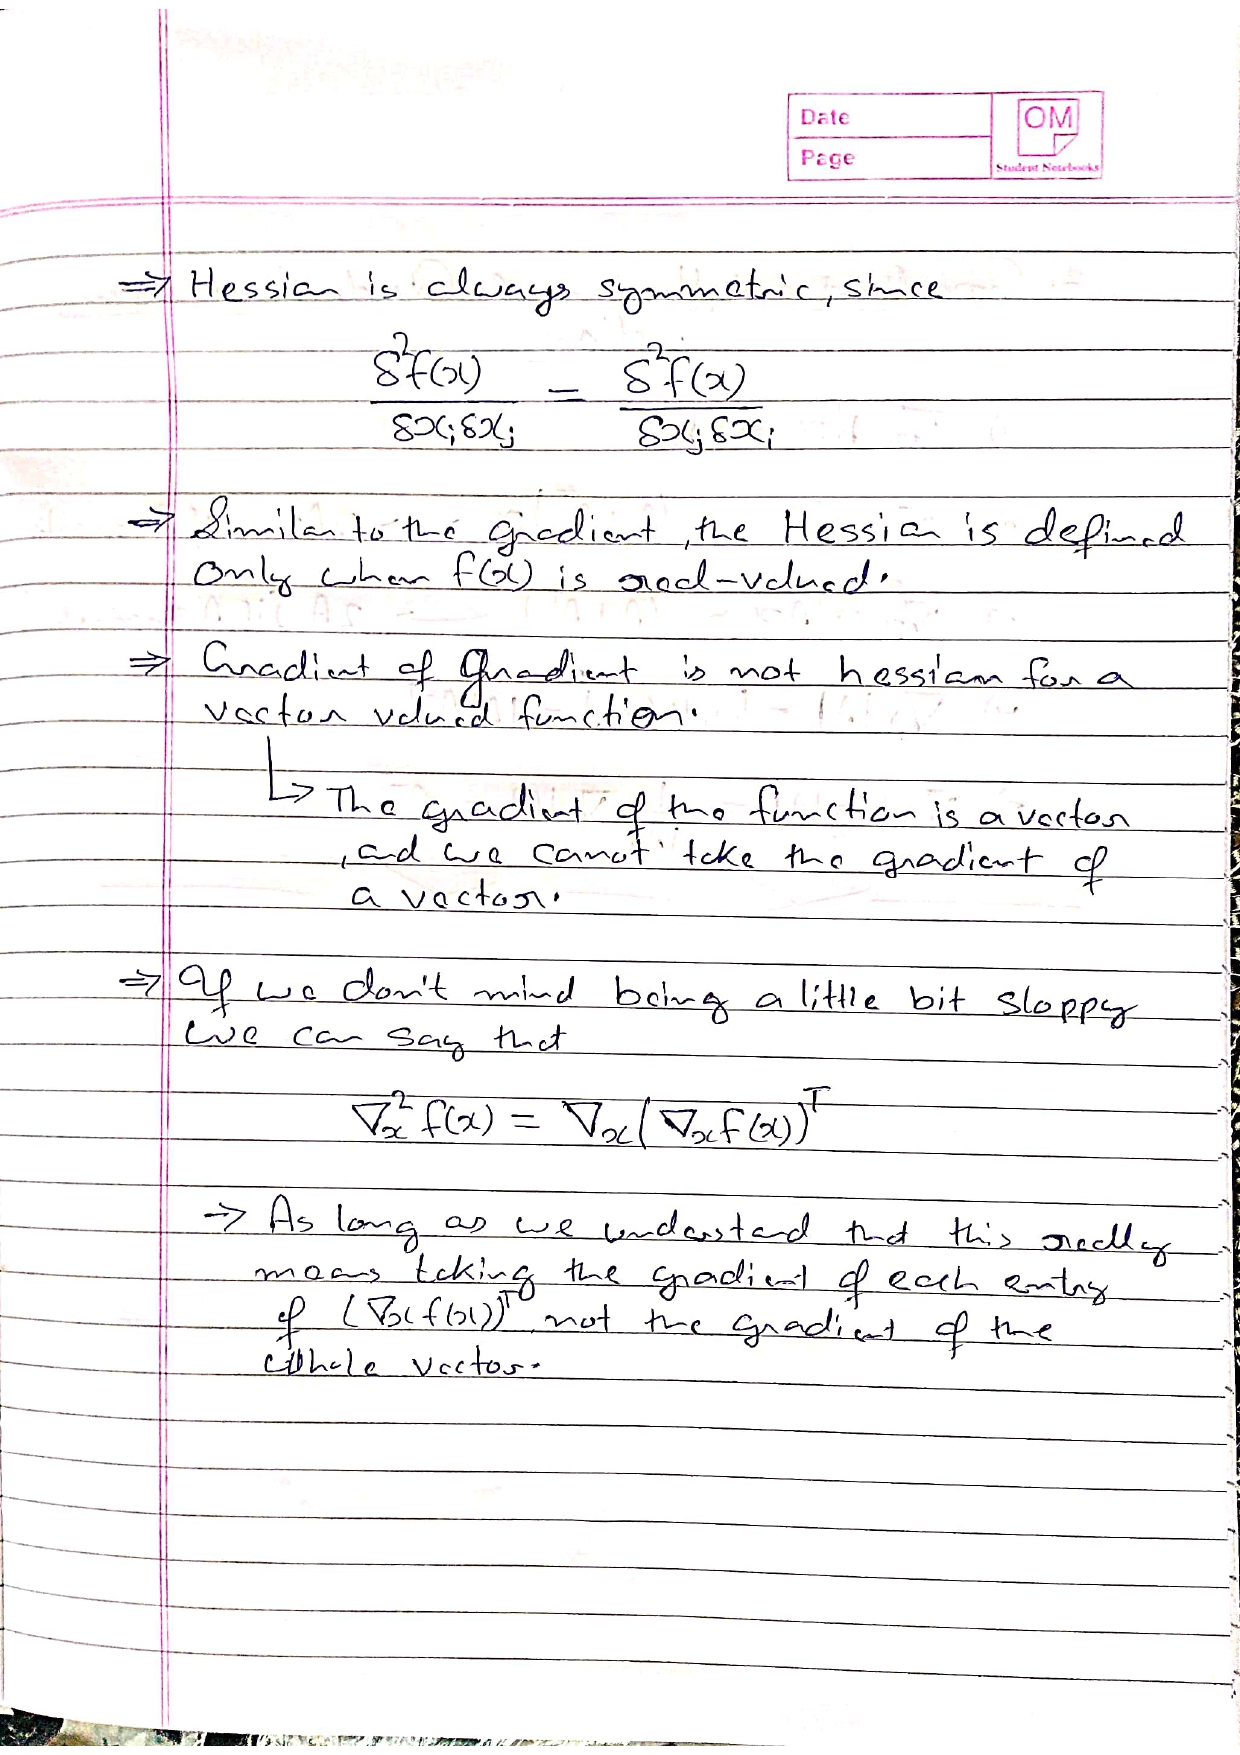 Date
OM
Page
Student Notebooks
⇒ Hessian is always symmetric, since
δ²f(x)/δxᵢδxⱼ = δ²f(x)/δxⱼδxᵢ
⇒ Similar to the gradient, the Hessian is defined
only when f(x) is real-valued.
⇒ Gradient of Gradient is not hessian for a
vector valued function.
↳ The gradient of the function is a vector
, and we canot take the gradient of
a vector.
⇒ If we don't mind being a little bit sloppy
we can say that
∇ₓ²f(x) = ∇ₓ(∇ₓf(x))ᵀ
→ As long as we understand that this really
means taking the gradient of each entry
of (∇ₓf(x))ᵀ, not the gradient of the
whole vector.